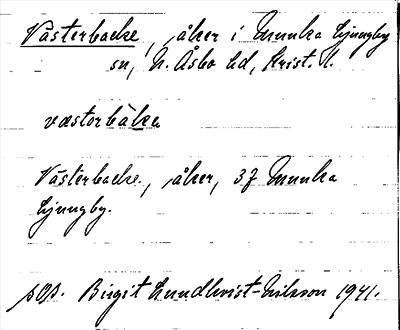 Västerbacke, åker i Munka Ljungby
sn, N. Åsbo hd, Krist. l.
væstorbàka
Västerbacke, åker, 37 Munka
Ljungby.
pop. Birgit Lundkvist-Nilsson 1941.